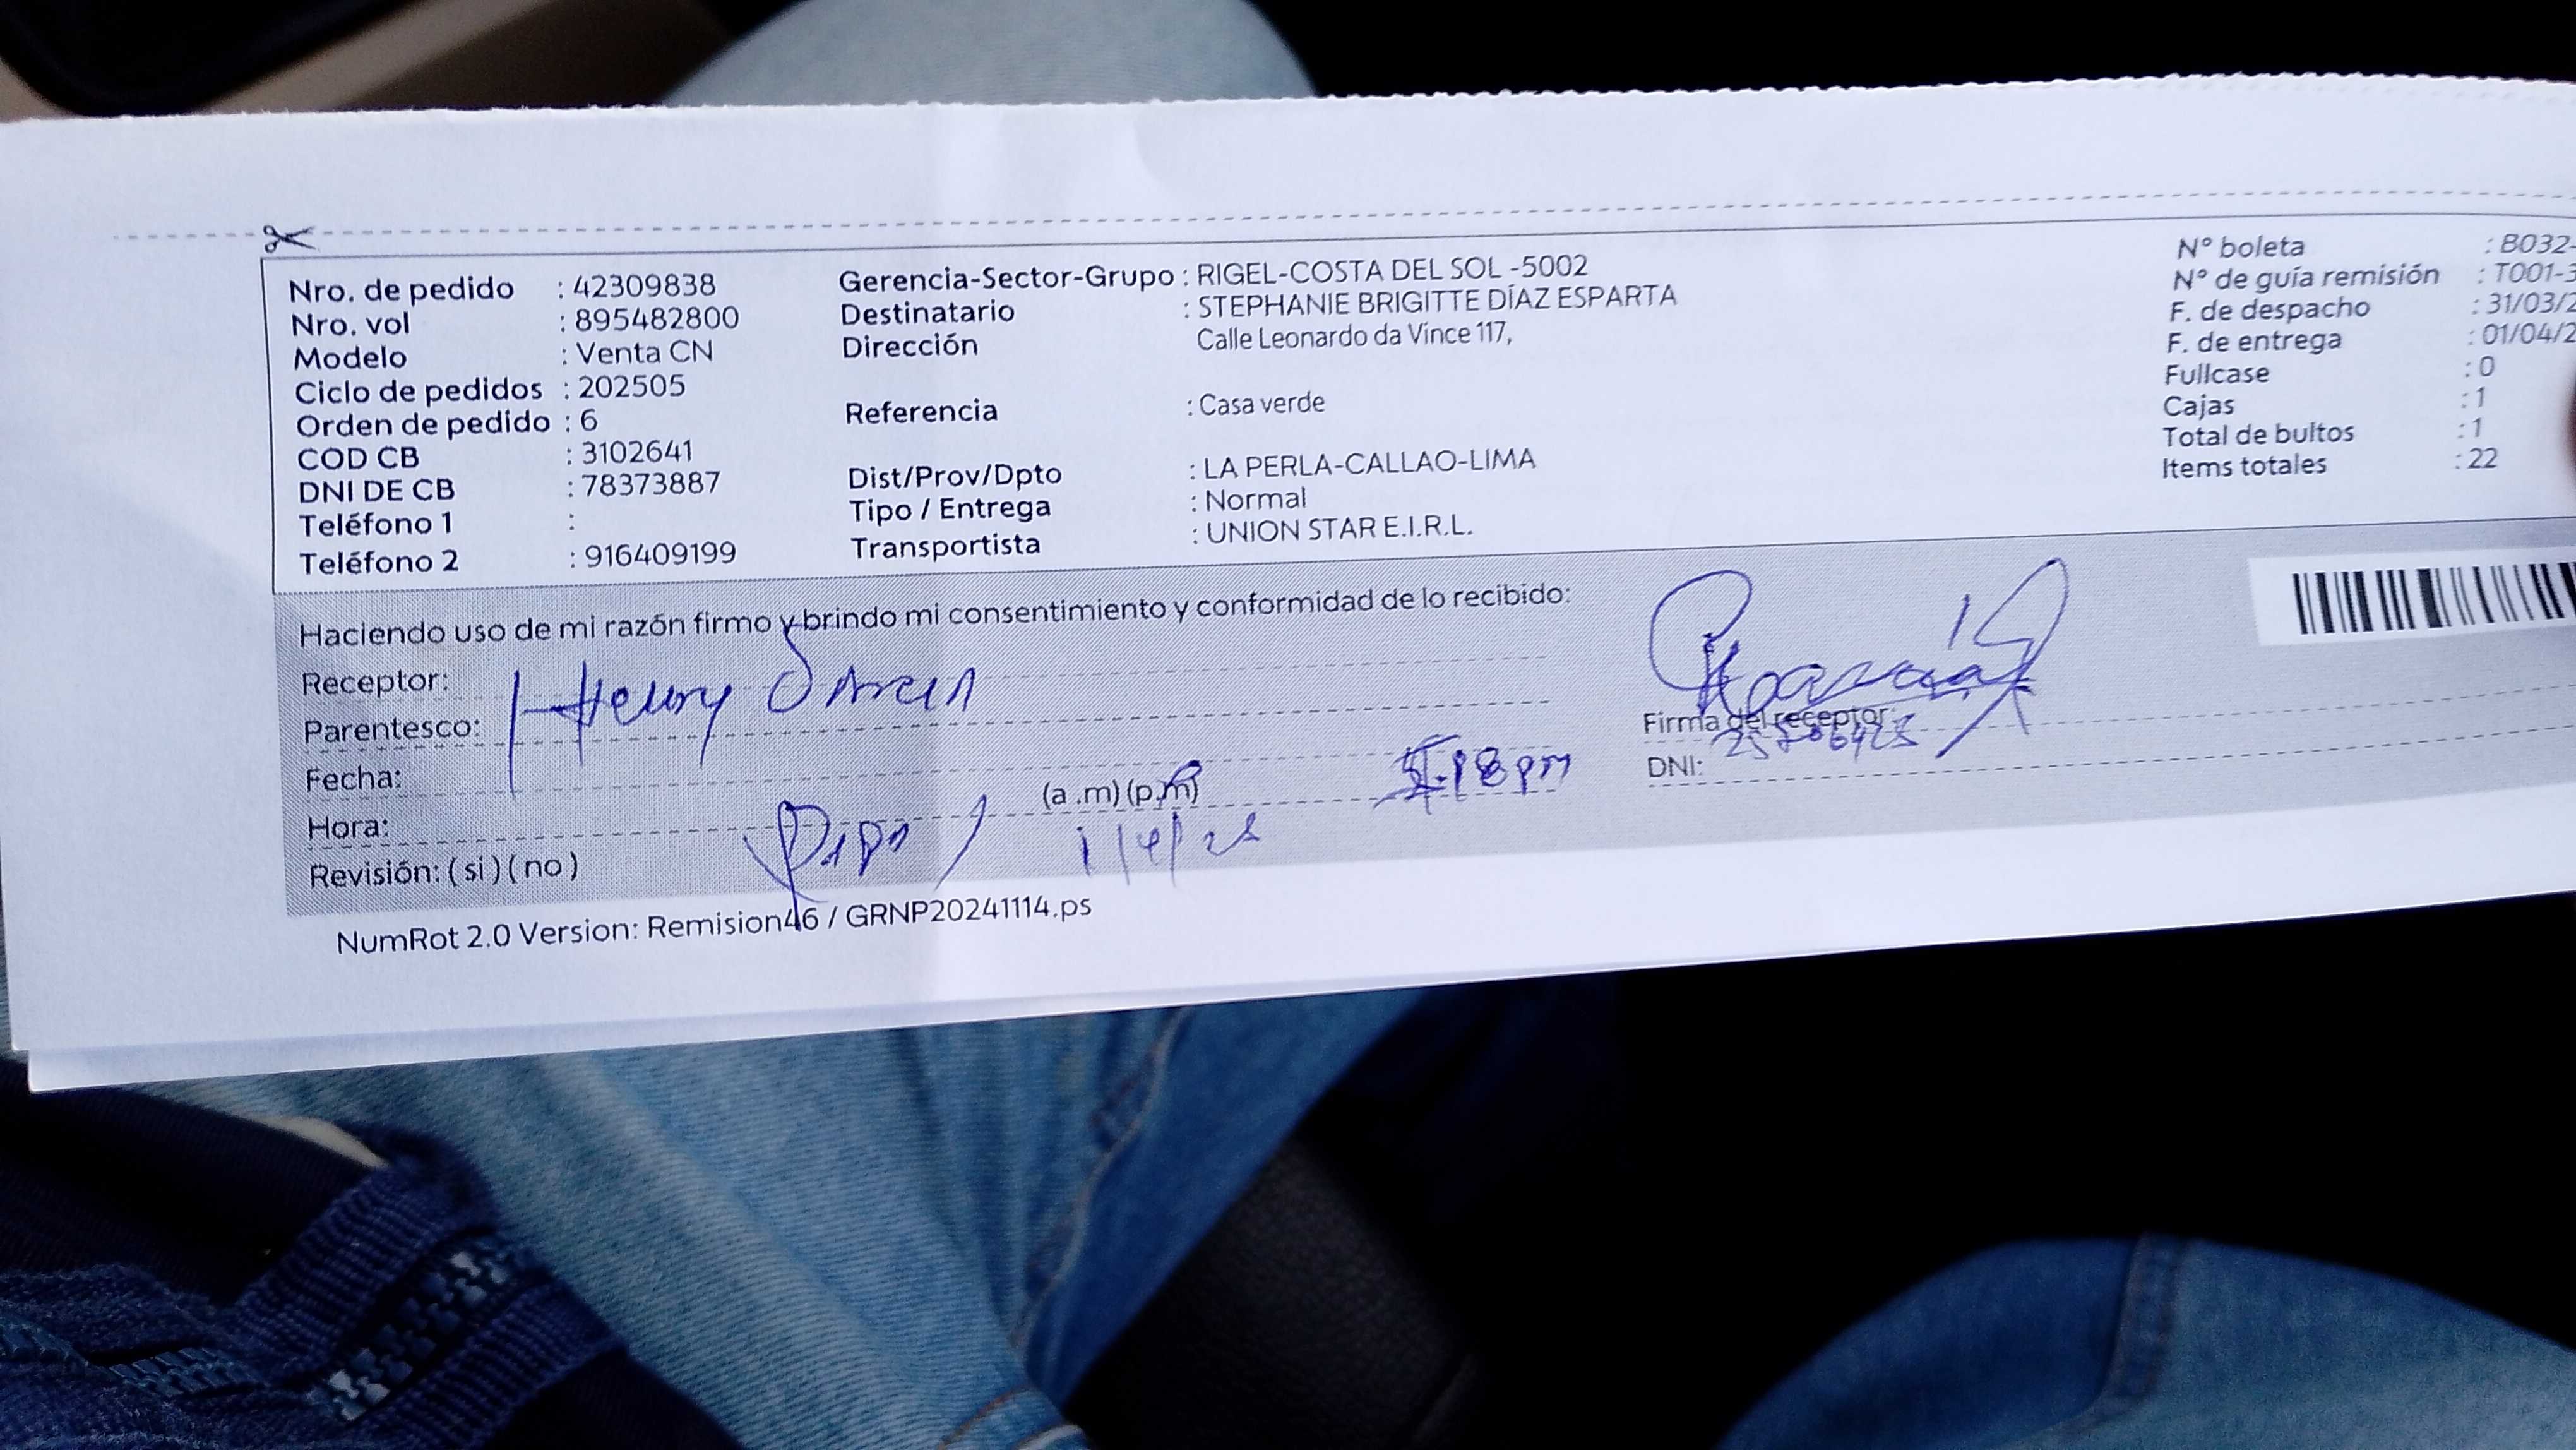 Nro. de pedido : 42309838
Nro. vol : 895482800
Modelo : Venta CN
Ciclo de pedidos : 202505
Orden de pedido : 6
COD CB : 3102641
DNI DE CB : 78373887
Teléfono 1 :
Teléfono 2 : 916409199
Gerencia-Sector-Grupo : RIGEL-COSTA DEL SOL -5002
Destinatario : STEPHANIE BRIGITTE DÍAZ ESPARTA
Dirección Calle Leonardo da Vince 117,
Referencia : Casa verde
Dist/Prov/Dpto : LA PERLA-CALLAO-LIMA
Tipo / Entrega : Normal
Transportista : UNION STAR E.I.R.L.
N° boleta : B032-
N° de guía remisión : T001-3
F. de despacho : 31/03/2
F. de entrega : 01/04/2
Fullcase : 0
Cajas : 1
Total de bultos : 1
Items totales : 22
Haciendo uso de mi razón firmo y brindo mi consentimiento y conformidad de lo recibido:
Receptor: Henry
Parentesco:
Fecha:
(a .m) (p.m)
Hora:
Revisión: ( si ) ( no )
Firma del receptor:
DNI:
NumRot 2.0 Version: Remision46 / GRNP20241114.ps